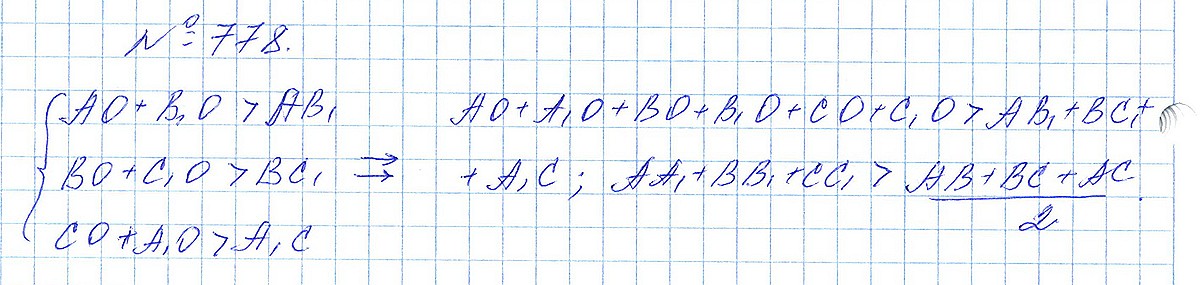 № 778.
AO + B₁O > AB₁
BO + C₁O > BC₁ ⇒
CO + A₁O > A₁C
AO + A₁O + BO + B₁O + CO + C₁O > AB₁ + BC₁ +
+ A₁C ; AA₁ + BB₁ + CC₁ > (AB + BC + AC)/2.